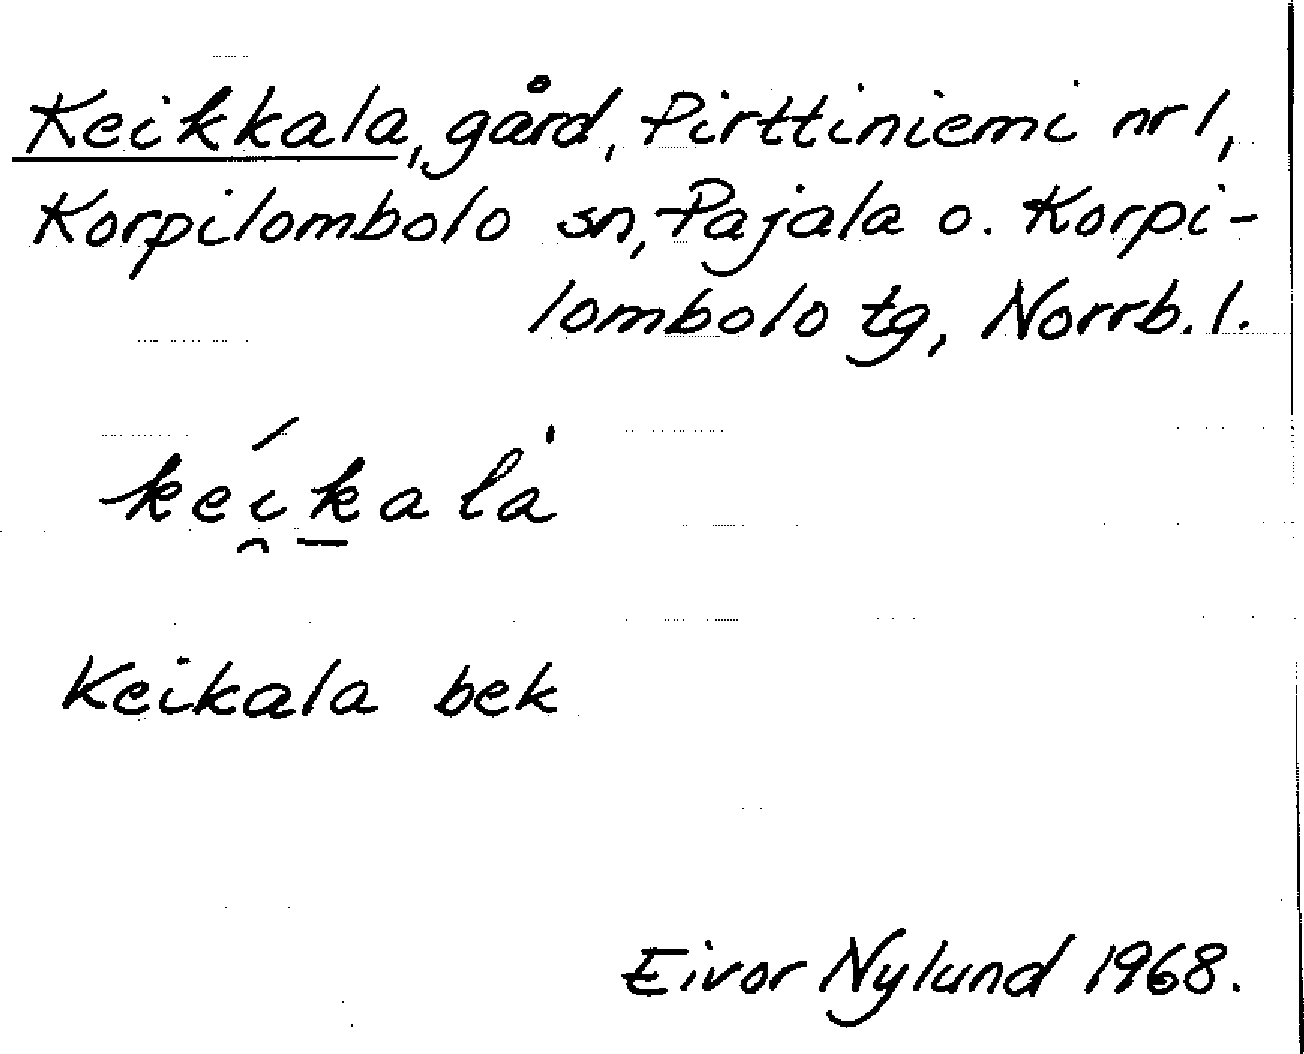 Keikkala, gård, Pirttiniemi nr 1,
Korpilombolo sn, Pajala o. Korpi-
lombolo tg, Norrb. l.
kéi̯ḵalà
Keikala bek
Eivor Nylund 1968.